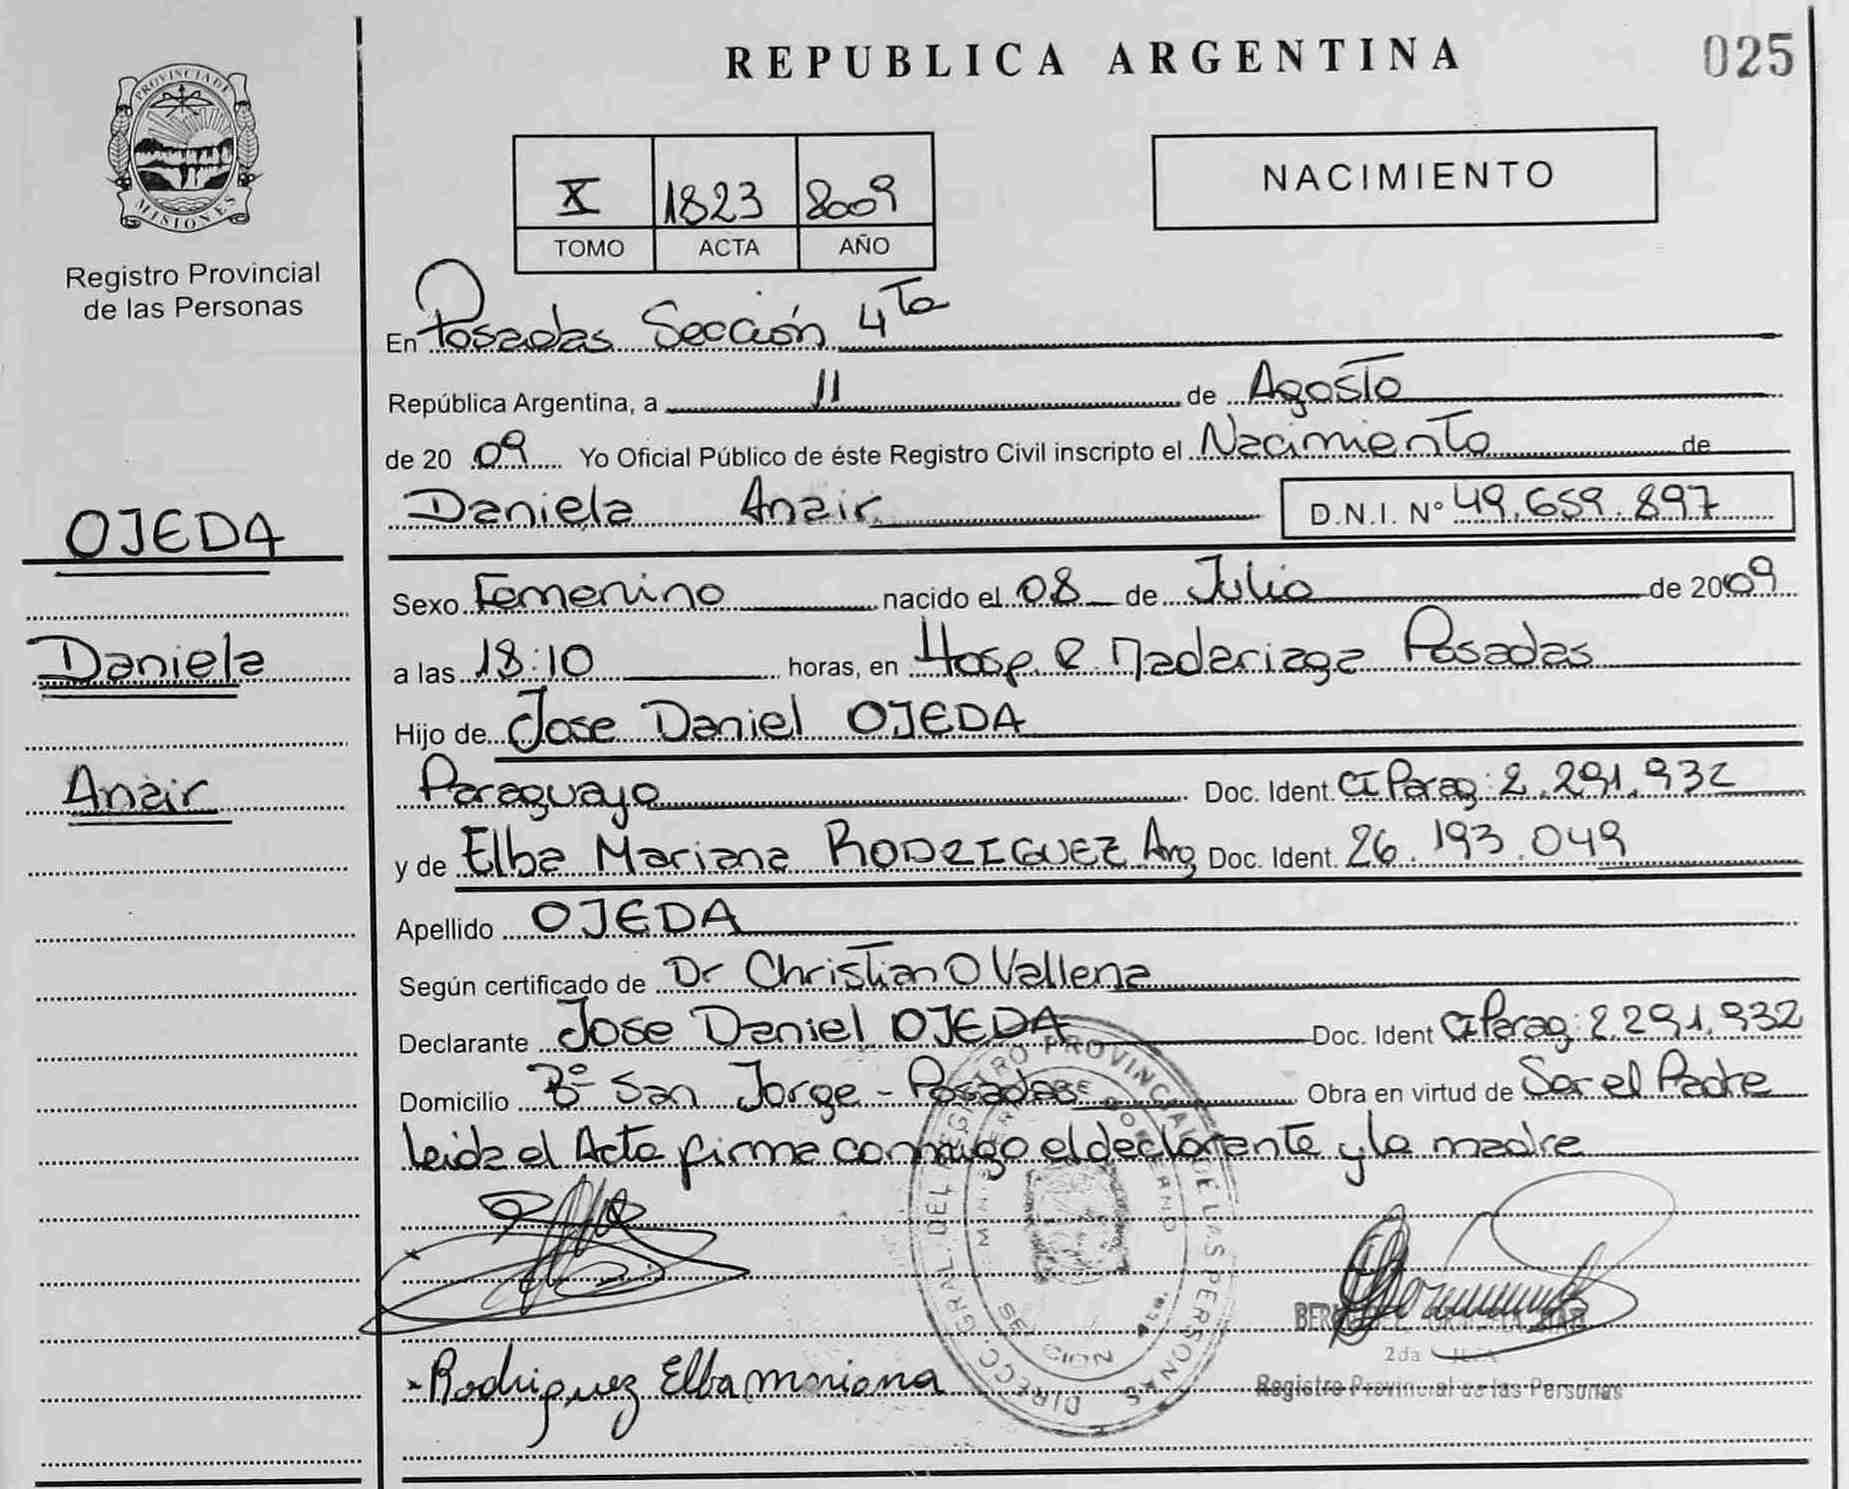 REPUBLICA ARGENTINA
025
PROVINCIA DE MISIONES
Registro Provincial
de las Personas
X 1823 2009
TOMO ACTA AÑO
NACIMIENTO
En Posadas Sección 4ta
República Argentina, a 11 de Agosto
de 20 09 Yo Oficial Público de éste Registro Civil inscripto el Nacimiento de
Daniela Anair D.N.I. N° 49.659.897
OJEDA
Daniela
Anair
Sexo Femenino nacido el 08 de Julio de 2009
a las 18:10 horas, en Hosp. R. Madariaga Posadas
Hijo de Jose Daniel OJEDA
Paraguayo Doc. Ident. CI Parag: 2.291.932
y de Elba Mariana RODRIGUEZ Arg Doc. Ident. 26.193.049
Apellido OJEDA
Según certificado de Dr Christian O Vallena
Declarante Jose Daniel OJEDA Doc. Ident CI Parag: 2.291.932
Domicilio Bº San Jorge - Posadas Obra en virtud de Ser el Padre
Leida el Acta firma conmigo el declarante y la madre
DIRECC. GRAL. DEL REGISTRO PROVINCIAL DE LAS PERSONAS
SECCION 4ta.
Rodriguez Elba Mariana
2da
Registro Provincial de las Personas